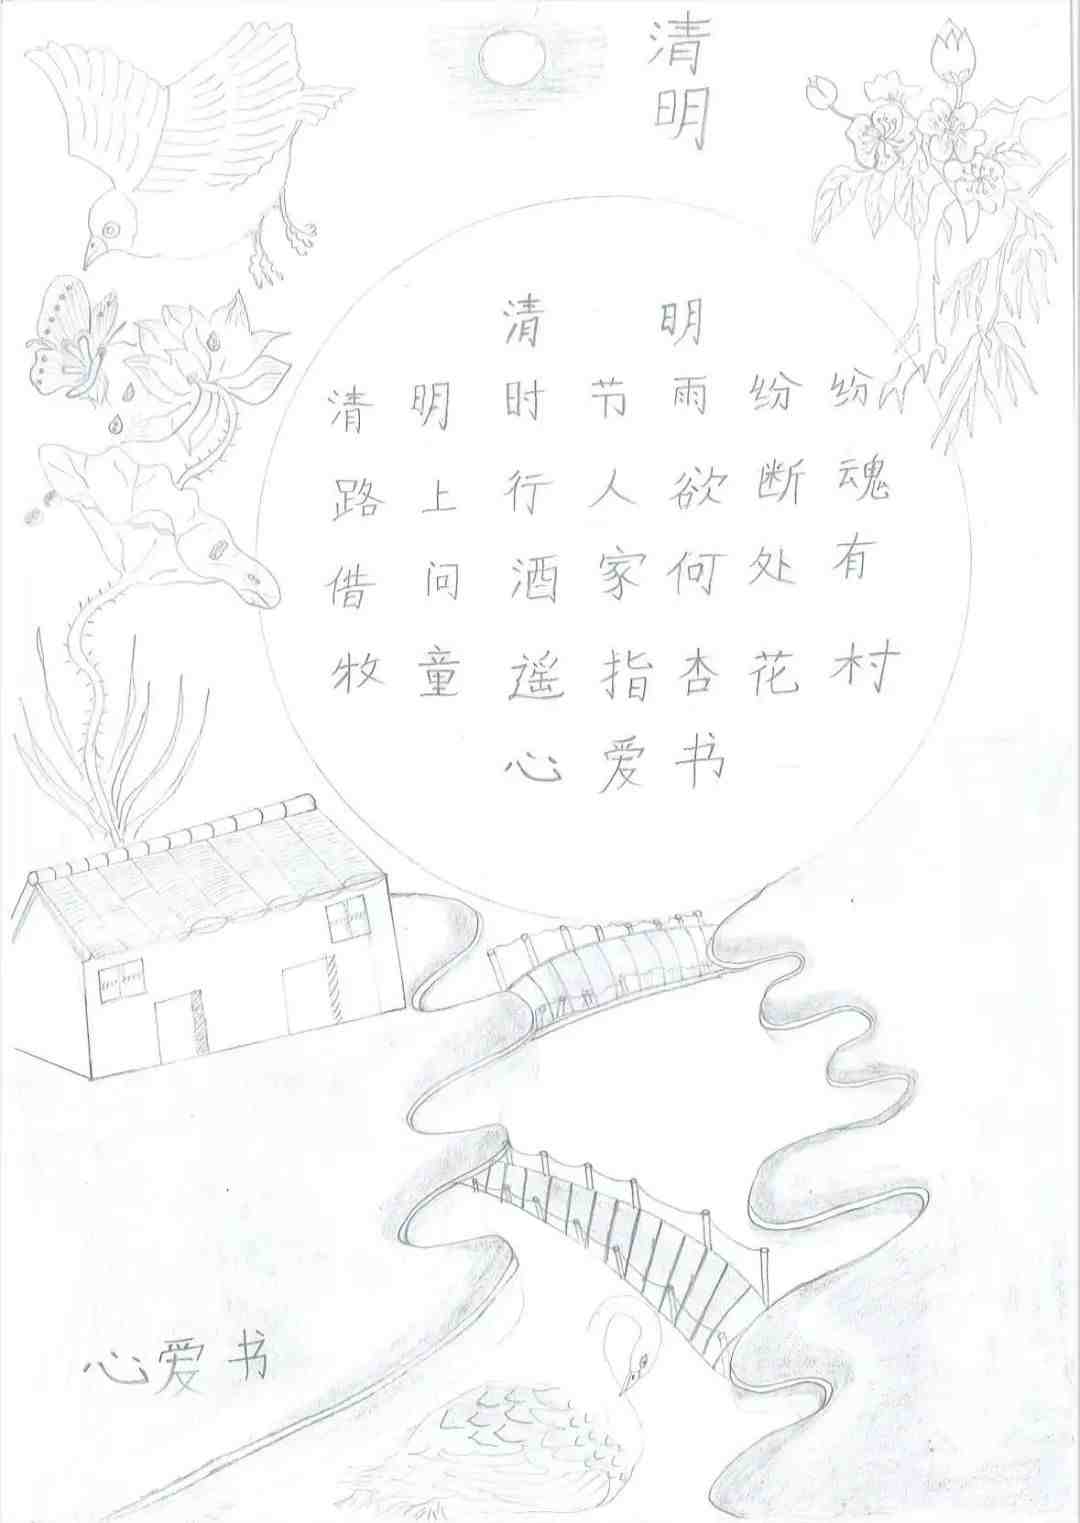 清明
清明
清明时节雨纷纷
路上行人欲断魂
借问酒家何处有
牧童遥指杏花村
心爱书
心爱书